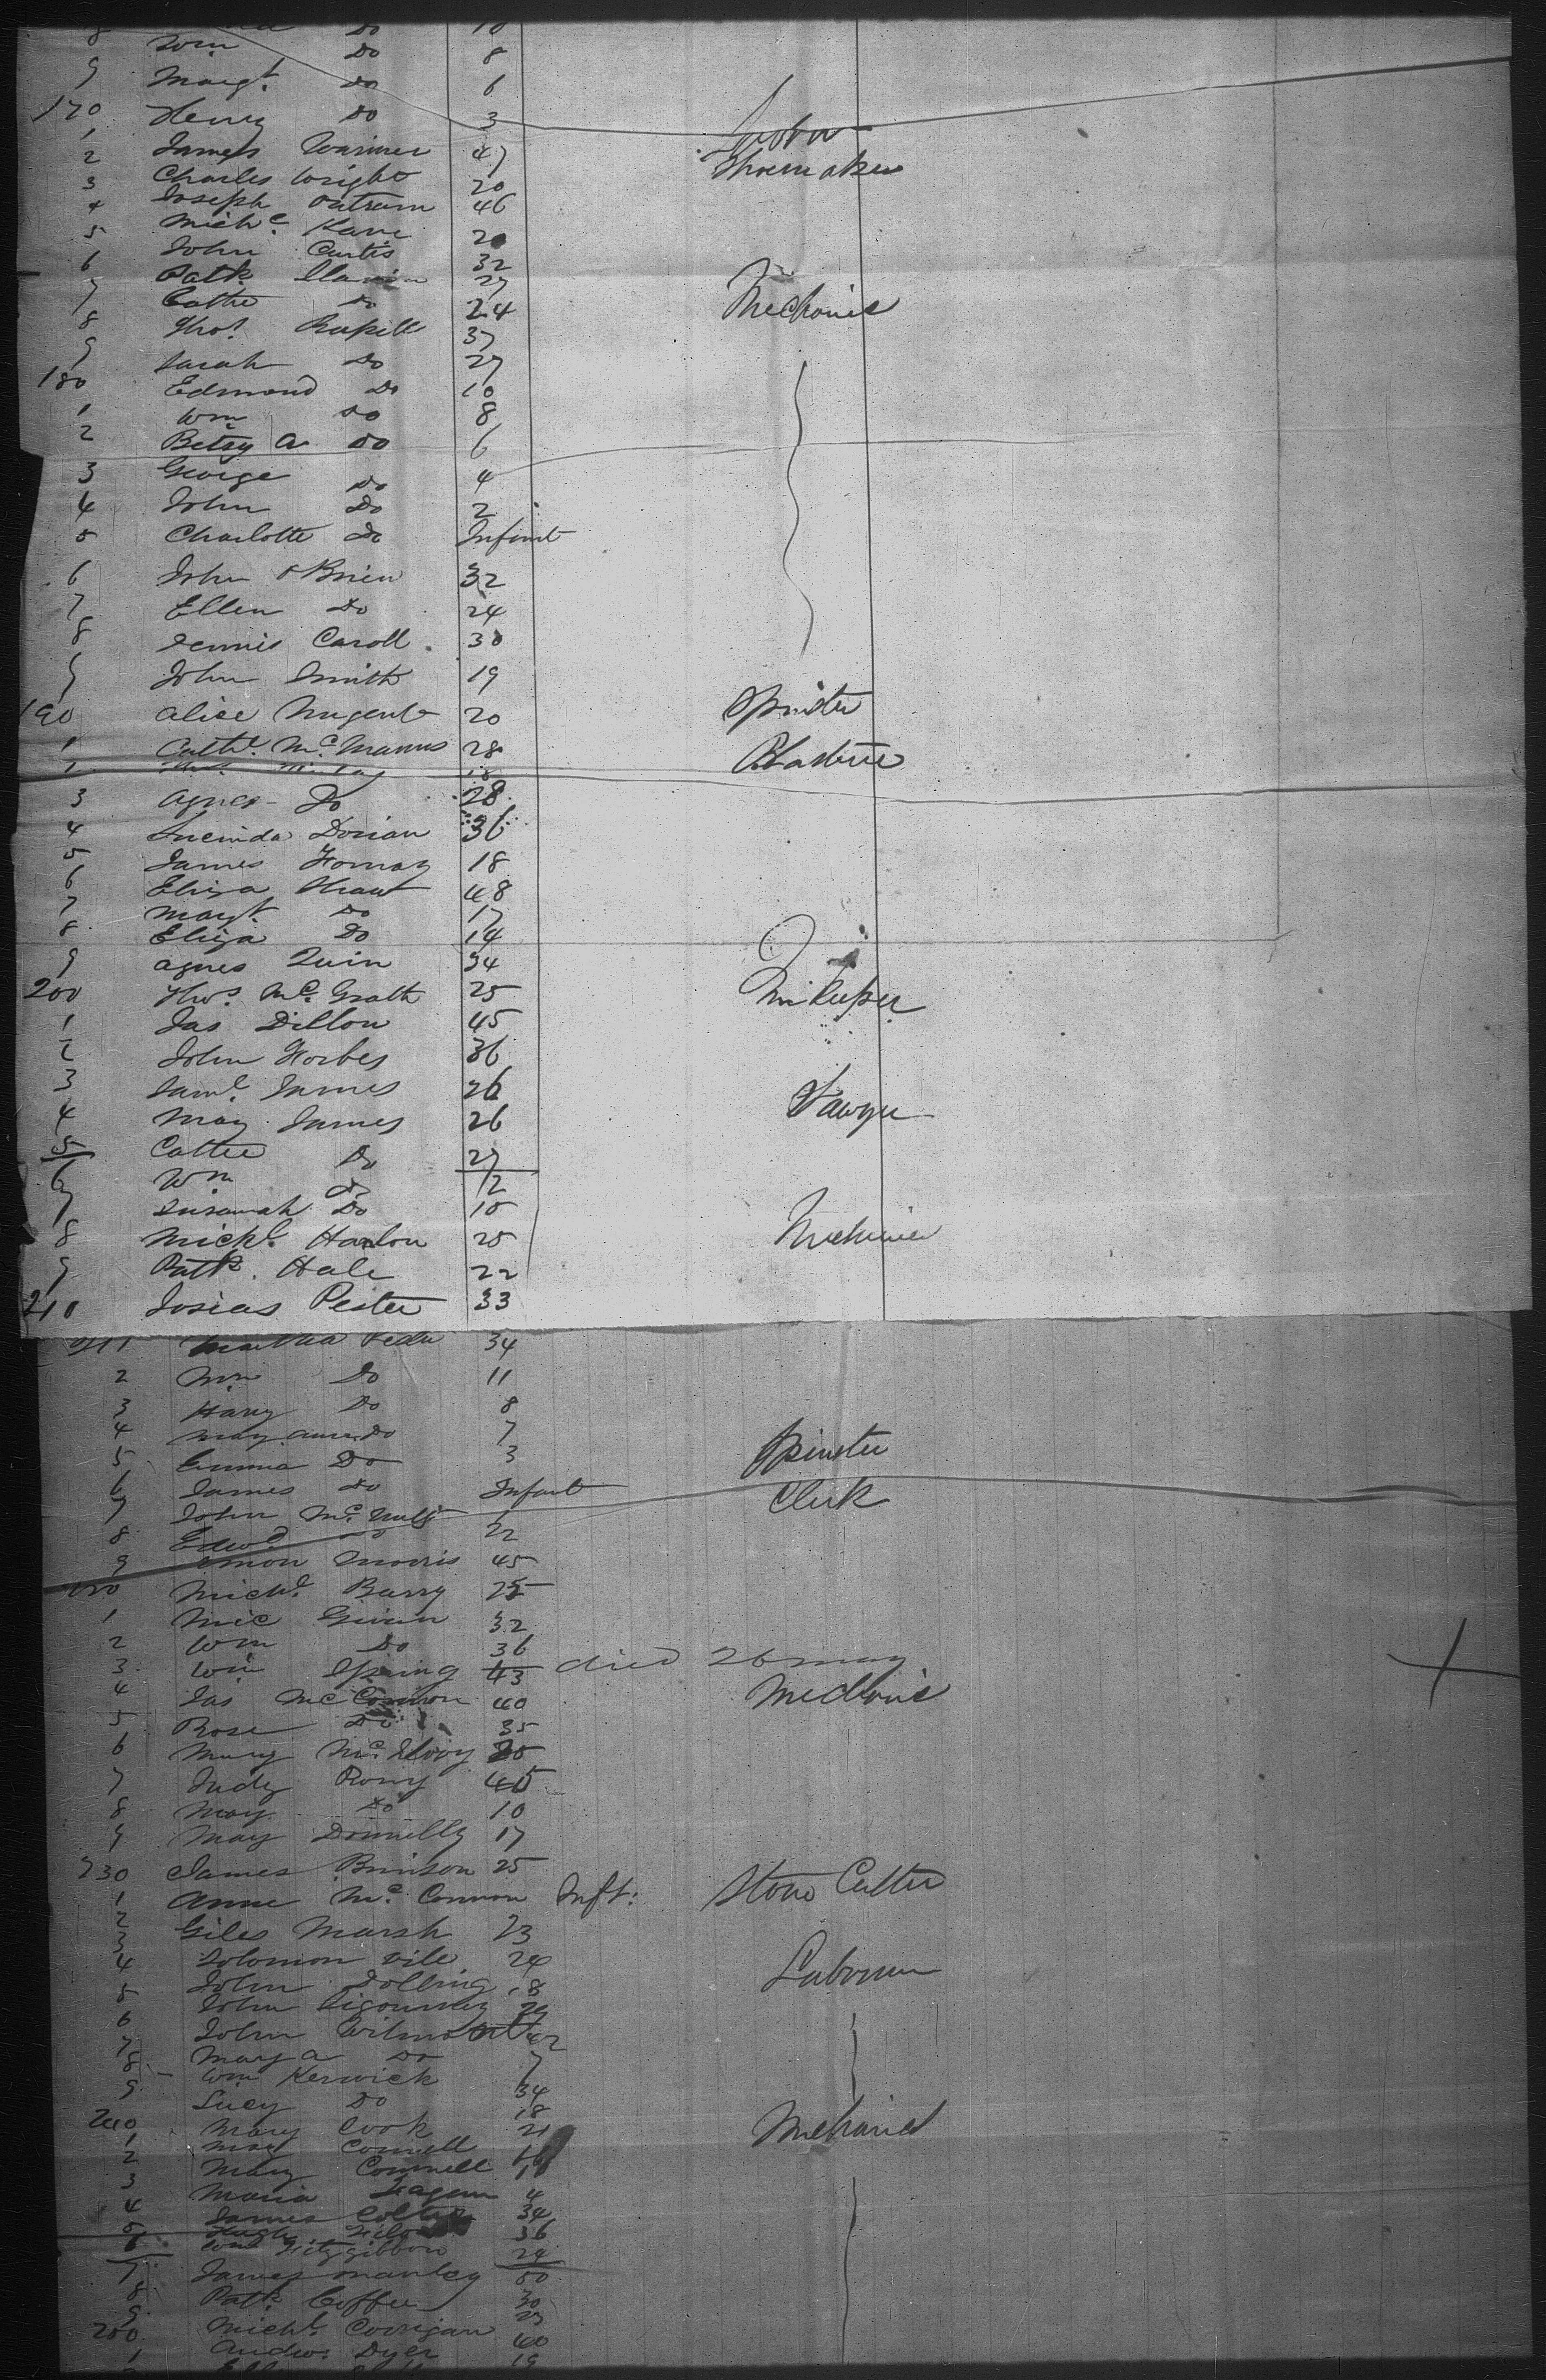 8 Do 10
9 Wm Do 8
Margt. Do 6
170 Henry Do 3
1 James Warimer 47
2 Charles Wright 20 Shoemaker
3 Joseph Outram 46
4 Michl. Kane
5 John Curtis 32
6 Patk. 27
7 Cathe Do 24 Mechanic
8 Thos. 37
9 Sarah Do 27
180 Edmond Do 10
1 Wm Do 8
2 Betsy A Do 6
3 George Do 4
4 John Do 2
5 Charlotte Do Infant
6 John O'Brien 32
7 Ellen Do 24
8 Dennis Caroll. 30
9 John Smith 19
190 Alice Nugent 20 Spinster
1 Cathe. Mc. Manus 28
3 Agnes Do 28
4 Lucinda Dorian 36
5 James 18
6 Eliza 48
7 Margt. Do 17
8 Eliza Do 14
9 Agnes Quin 34
200 Thos. Mc. Grath 25
1 Jas Dillon 45
2 John Forbes 36
3 Saml. James 26
4 Mary James 26 Sawyer
5 Cathe Do 27
6 Wm Do 12
7 Susanah Do 10
8 Michl. Hanlon 25 Mechanic
9 Patk. Hale 22
210 Josias Pester 33
211 Martha Pester 34
2 Wm Do 11
3 Harry Do 8
4 Mary Ann Do 7
5 Emma Do 3 Spinster
6 James Do Infant
7 John Mc. Clerk
8 Edwd Do 22
9 Simon Morris 45
220 Michl. Barry 25
1 Mic 32
2 Wm Do 36
3 Wm Spring 43 died 26 may
4 Jas McConnon 40 Mechanic
5 Rose Do 35
6 Mary Mc. Elroy
7 Judy Rony 45
8 Mary Do 10
9 Mary Donnelly 17
230 James Brinson 25
1 Anne Mc. Connon Inft: Stone Cutter
2 Giles Marsh 23
3 Solomon Vile 24
4 John Dolling 18 Labourer
5 John Sigourney
6 John 42
7 Mary A Do 7
8 Wm Kerwick 34
9 Lucy Do 18
240 Mary Cook 21 Mechanics
1 Mary Connell
2 Mary Connell
3 Maria 4
4 James 34
5 Hugh 36
6 Wm Fitzgibbon 24
7 James Manley 50
8 Patk. Coffee 30
9 Michl. Corrigan
250 Andw. Dyer 40
1 19